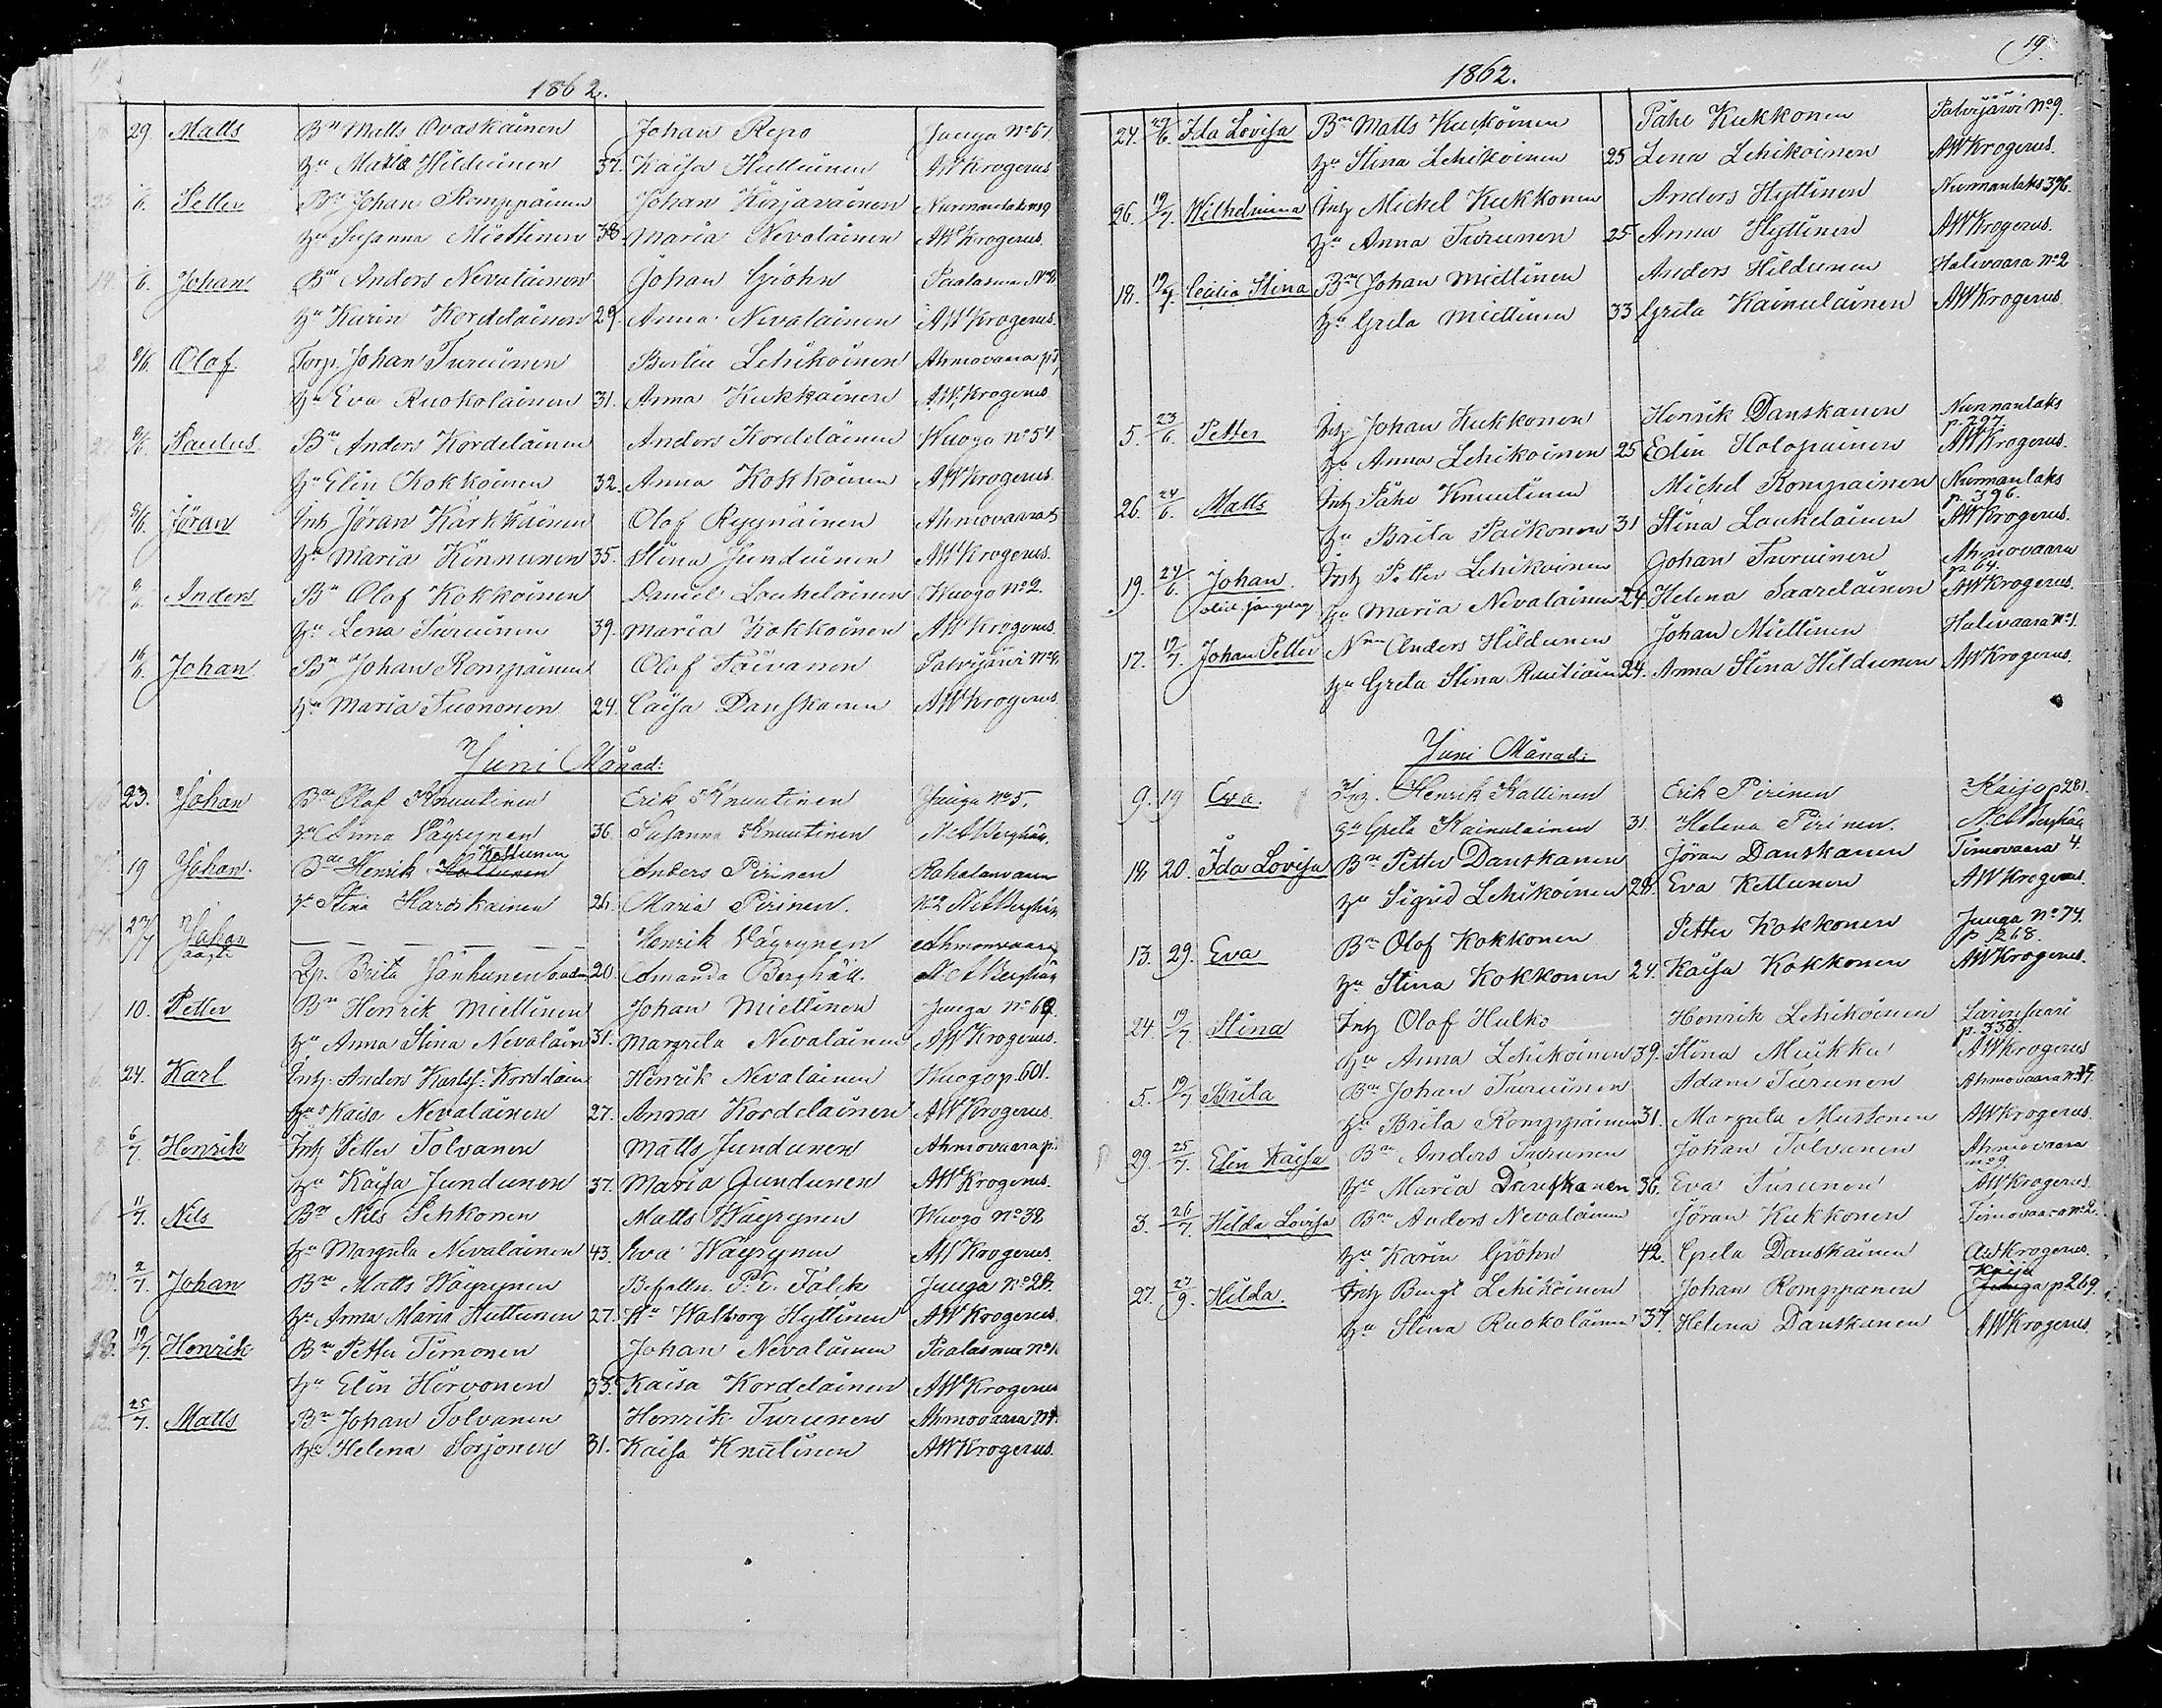 1862.
29. Matts Bn Matts Ovaskainen Johan Repo Juuga No 61.
hu Maria Hildunen 37. Kaisa Huttunen AWKrogerus
Petter Bn Johan Romppainen Johan Kirjavainen Nurmanlaks no 9
hu Susanna Miettinen 38 Maria Nevalainen AWKrogerus.
14 Johan Bn Anders Nevalainen Johan Gröhn Paalasmaa No
hu Karin Kordelainen 29. Anna Nevalainen AWKrogerus.
Olof. Torp. Johan Turunen Bertil Lehikoinen Ahmovaara
hu Eva Ruokolainen 31. Anna Kukkainen AWKrogerus
Paulus Bn Anders Kordelainen Anders Kordelainen Wuogo No 54
hu Elin Kokkoinen 32. Anna Kokkoinen AWKrogerus.
Jöran Inh Jöran Karkkainen Olof Ryynäinen Ahmovaara
hu Maria Kinnunen 35. Stina Jundunen AWKrogerus.
Anders Bn Olof Kokkoinen Daniel Laukelainen Wuogo No 2.
hu Lena Turunen 39. Maria Kokkoinen AWKrogerus.
16/6. Johan Bn Johan Rompainen Olof Päivanen Polvijärvi No
hu Maria Tuononen 24. Caisa Danskanen AWKrogerus
Juni Månad:
23. Johan Bde Olof Knuutinen Erik Knuutinen Juuga No 5.
hu Anna Väyrynen 36. Susanna Knuutinen
19 Johan. Bde Henrik Kettunen Anders Pirinen Raholanvaara
hu Stina Haroskainen 26. Maria Pirinen. No 2
27/7 Johan Henrik Väyrynen Ahmonvaara
Brita Janhunen 20. Amanda Berghäll.
10. Petter Bn Henrik Miettinen Johan Miettinen Juuga No 69.
hu Anna Stina Nevalain 31. Margreta Nevalainen AWKrogerus.
6. 24. Karl Inh. Anders Karlss: Kordelain Henrik Nevalainen Wuogo p. 601.
hu Kaisa Nevalainen 27. Anna Kordelainen AWKrogerus.
8 6/7. Henrik Inh Petter Tolvanen Matts Jundunen Ahmovaara p.
hu Kaisa Jundunen 37. Maria Jundunen AWKrogerus.
11/7. Nils Bn Nils Pehkonen Matts Wäyrynen Wuogo No 38
hu Margreta Nevalainen 43. Eva Wäyrynen AWKrogerus
2/7. Johan Bn Matts Wäyrynen Befallm. P. E. Falck Juuga No 28.
hu Anna Maria Huttunen 27. Walborg Hyttinen AWKrogerus.
18. 19/7. Henrik Bn Petter Timonen Johan Nevalainen Paalasmaa No
hu Elin Hirvonen 33. Kaisa Kordelainen AWKrogerus
12. 25/7. Matts Bn Johan Tolvanen Henrik Turunen Ahmovaara
hu Helena Sorjonen 31. Kaisa Knutinen AWKrogerus.
19.
1862.
24. 29/6. Ida Lovisa Bn Matts Kukkoinen Påhl Kukkonen Polvijärvi No 9.
hu Stina Lehikoinen 25 Lena Lehikoinen AWKrogerus.
26. 19/7. Wilhelmina Inh Michel Kukkonen Anders Hyttinen Nurmanlaks 396.
hu Anna Turunen 25 Anna Hyttinen AWKrogerus.
18. 19/7. Cecilia Stina Bn Johan Miettinen Anders Hildunen Halivaara No 2
hu Greta Miettinen 33 Greta Kainulainen AWKrogerus.
5. 23/6. Petter Inh Johan Kukkonen Henrik Danskanen Nurmanlaks
p. 297.
hu Anna Lehikoinen 25 Elin Holopainen AWKrogerus.
26. 24/6. Matts Inh Påhl Knuutinen Michel Rompainen Nurmanlaks
p. 396.
hu Brita Paikonen 31 Stina Laukelainen AWKrogerus.
19. 24/6. Johan. Inh Petter Lehikoinen Johan Turunen Ahmovaara
p. 64.
hu Maria Nevalainen 24. Helena Saarelainen AWKrogerus.
17. 19/7. Johan Petter Anders Hildunen Johan Miettinen Halivaara No 1.
hu Greta Stina 24. Anna Stina Hildunen AWKrogerus.
Juni Månad:
9. 19 Eva. Inh. Henrik Kallinen Erik Pirinen Kaijo p 281.
hu Greta Kainulainen 31. Helena Pirinen.
18 20. Ida Lovisa Bn Petter Danskanen Jöran Danskanen Timovaara 4.
hu Sigrid Lehikoinen 28. Eva Kettunen AWKrogerus.
13. 29. Eva Bn Olof Kokkonen Petter Kokkonen Juuga No 74.
p 268.
hu Stina Kokkonen 24. Kaisa Kokkonen AWKrogerus.
24. 19/7 Stina Inh Olof Hulko Henrik Lehikoinen Larinsaari
p. 338.
hu Anna Lehikoinen 39. Stina Mukka AWKrogerus
5. 19/7 Brita Bn Johan Turunen Adam Turunen Ahmovaara
hu Brita Romppainen 31. Margreta Mustonen AWKrogerus.
29. 25/7. Elin Kaisa Bn Anders Turunen Johan Tolvanen Ahmovaara
no 9
hu Maria Danskanen 36. Eva Turunen AWKrogerus.
3. 26/7. Hilda Lovisa Bn Anders Nevalainen Jöran Kukkonen Timovaara no 2.
hu Karin Gröhn 42. Greta Danskainen AWKrogerus.
Kaijo
27. 27/9. Hilda. Inh Bengt Lehikoinen Johan Romppanen Juuga p 269.
hu Stina Ruokolainen 37. Helena Danskanen AWKrogerus.